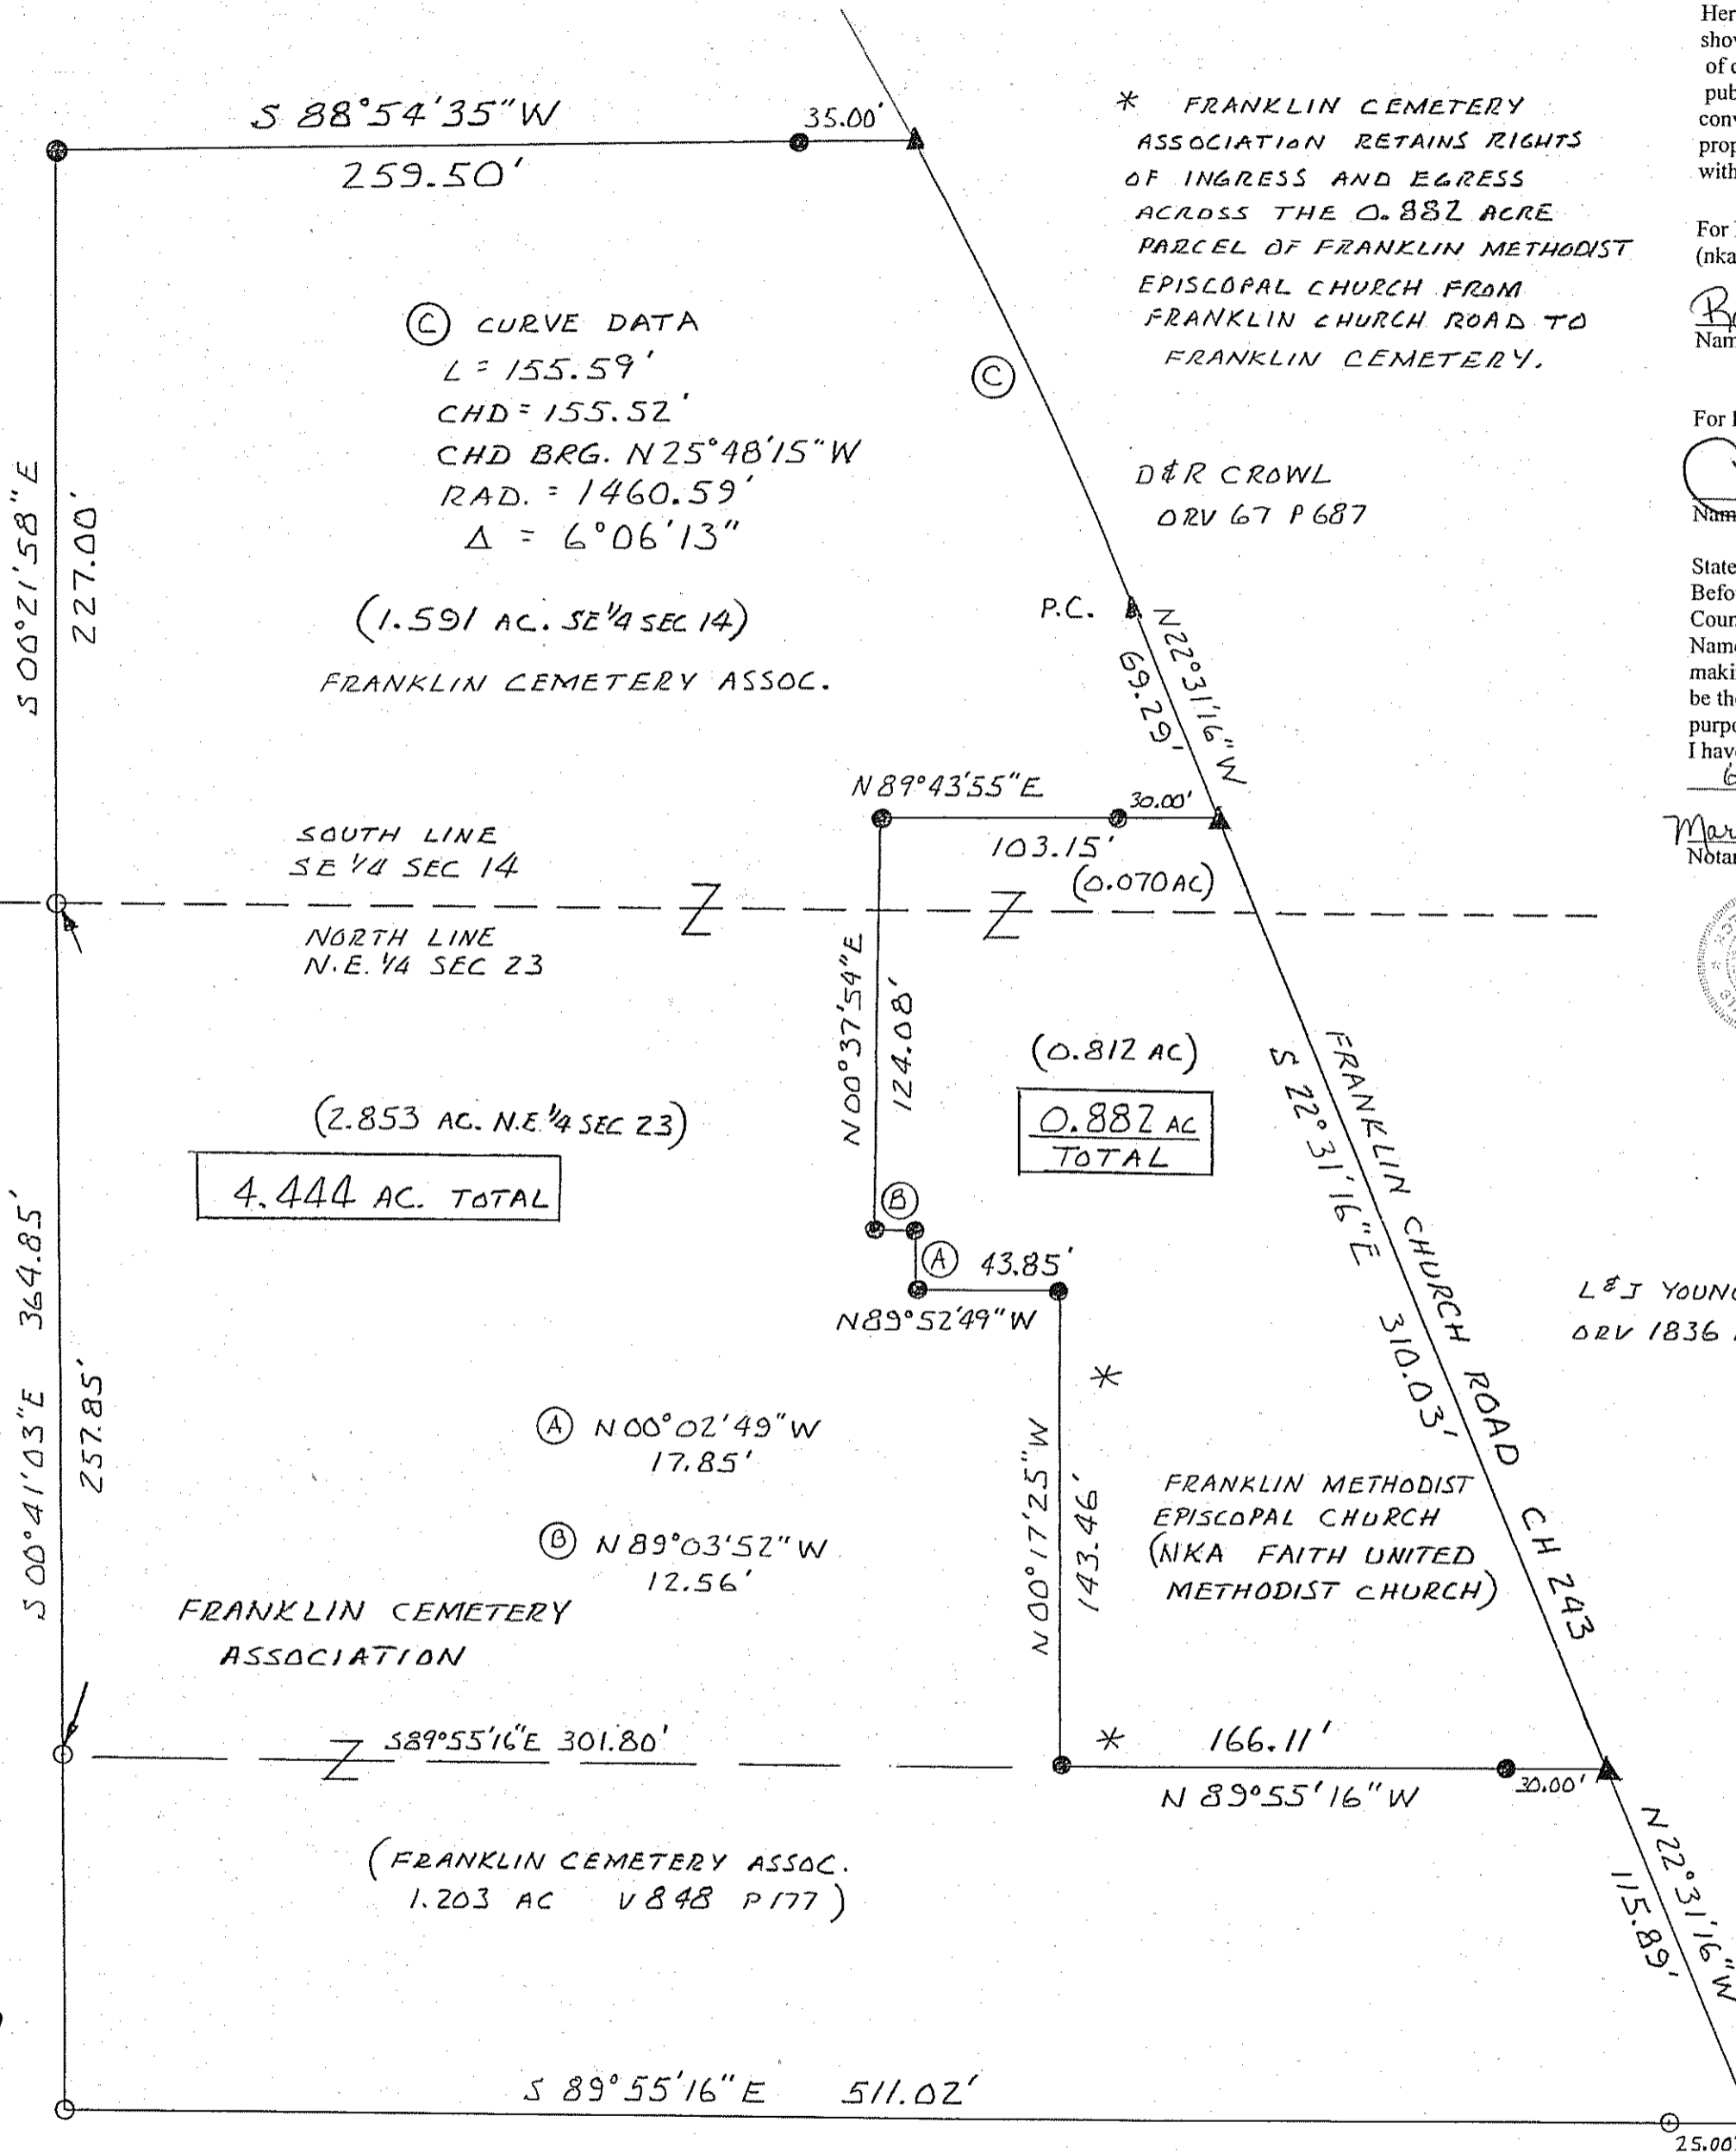 S 88°54'35"W
35.00'
259.50'
* FRANKLIN CEMETERY
ASSOCIATION RETAINS RIGHTS
OF INGRESS AND EGRESS
ACROSS THE 0.882 ACRE
PARCEL OF FRANKLIN METHODIST
EPISCOPAL CHURCH FROM
FRANKLIN CHURCH ROAD TO
FRANKLIN CEMETERY.
Ⓒ CURVE DATA
L = 155.59'
CHD = 155.52'
CHD BRG. N 25°48'15"W
RAD. = 1460.59'
Δ = 6°06'13"
Ⓒ
D&R CROWL
ORV 67 P 687
S 00°21'58"E
227.00'
(1.591 AC. SE 1/4 SEC 14)
FRANKLIN CEMETERY ASSOC.
P.C.
N22°31'16"W
69.29'
N 89°43'55"E
30.00'
103.15'
(0.070 AC)
SOUTH LINE
SE 1/4 SEC 14
Z
Z
NORTH LINE
N.E. 1/4 SEC 23
N 00°37'54"E
124.08'
(0.812 AC)
0.882 AC
TOTAL
(2.853 AC. N.E. 1/4 SEC 23)
4.444 AC. TOTAL
FRANKLIN CHURCH ROAD CH 243
S 22°31'16"E 310.03'
Ⓑ
Ⓐ 43.85'
N89°52'49"W
L&J
ORV 1836
S 00°41'03"E 364.85'
257.85'
*
Ⓐ N 00°02'49"W
17.85'
Ⓑ N 89°03'52"W
12.56'
N 00°17'25"W
143.46'
FRANKLIN METHODIST
EPISCOPAL CHURCH
(NKA FAITH UNITED
METHODIST CHURCH)
FRANKLIN CEMETERY
ASSOCIATION
Z S89°55'16"E 301.80'
* 166.11'
N 89°55'16"W
30.00'
(FRANKLIN CEMETERY ASSOC.
1.203 AC V 848 P 177)
N22°31'16"W
115.89'
S 89°55'16"E 511.02'
25.00'
Her
show
of
pub
conv
prop
with
For
(nka
Nam
For
Nam
State
Befo
Coun
Name
maki
be the
purpo
I have
6
Mar
Notar